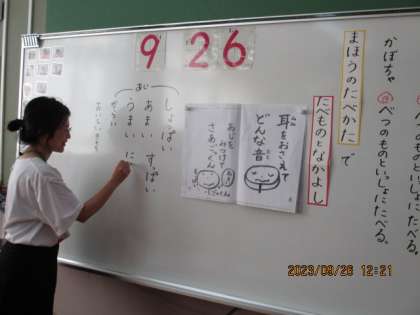 9 26
べつのものといっしょにたべる。
べつのものといっしょにたべる。
かぼちゃ
まほうのたべかたで
たべものとなかよし
耳をおさえて
どんな音
あじを
みつけて
あじ
しょっぱい
あまい すっぱい
うまい に
からい
2023/09/26 12:21